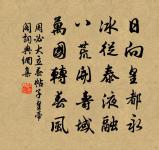 日向皇都永
冰從泰液融
八荒開壽域
萬國轉春風
周必大立春帖子皇帝
閣詞典網集